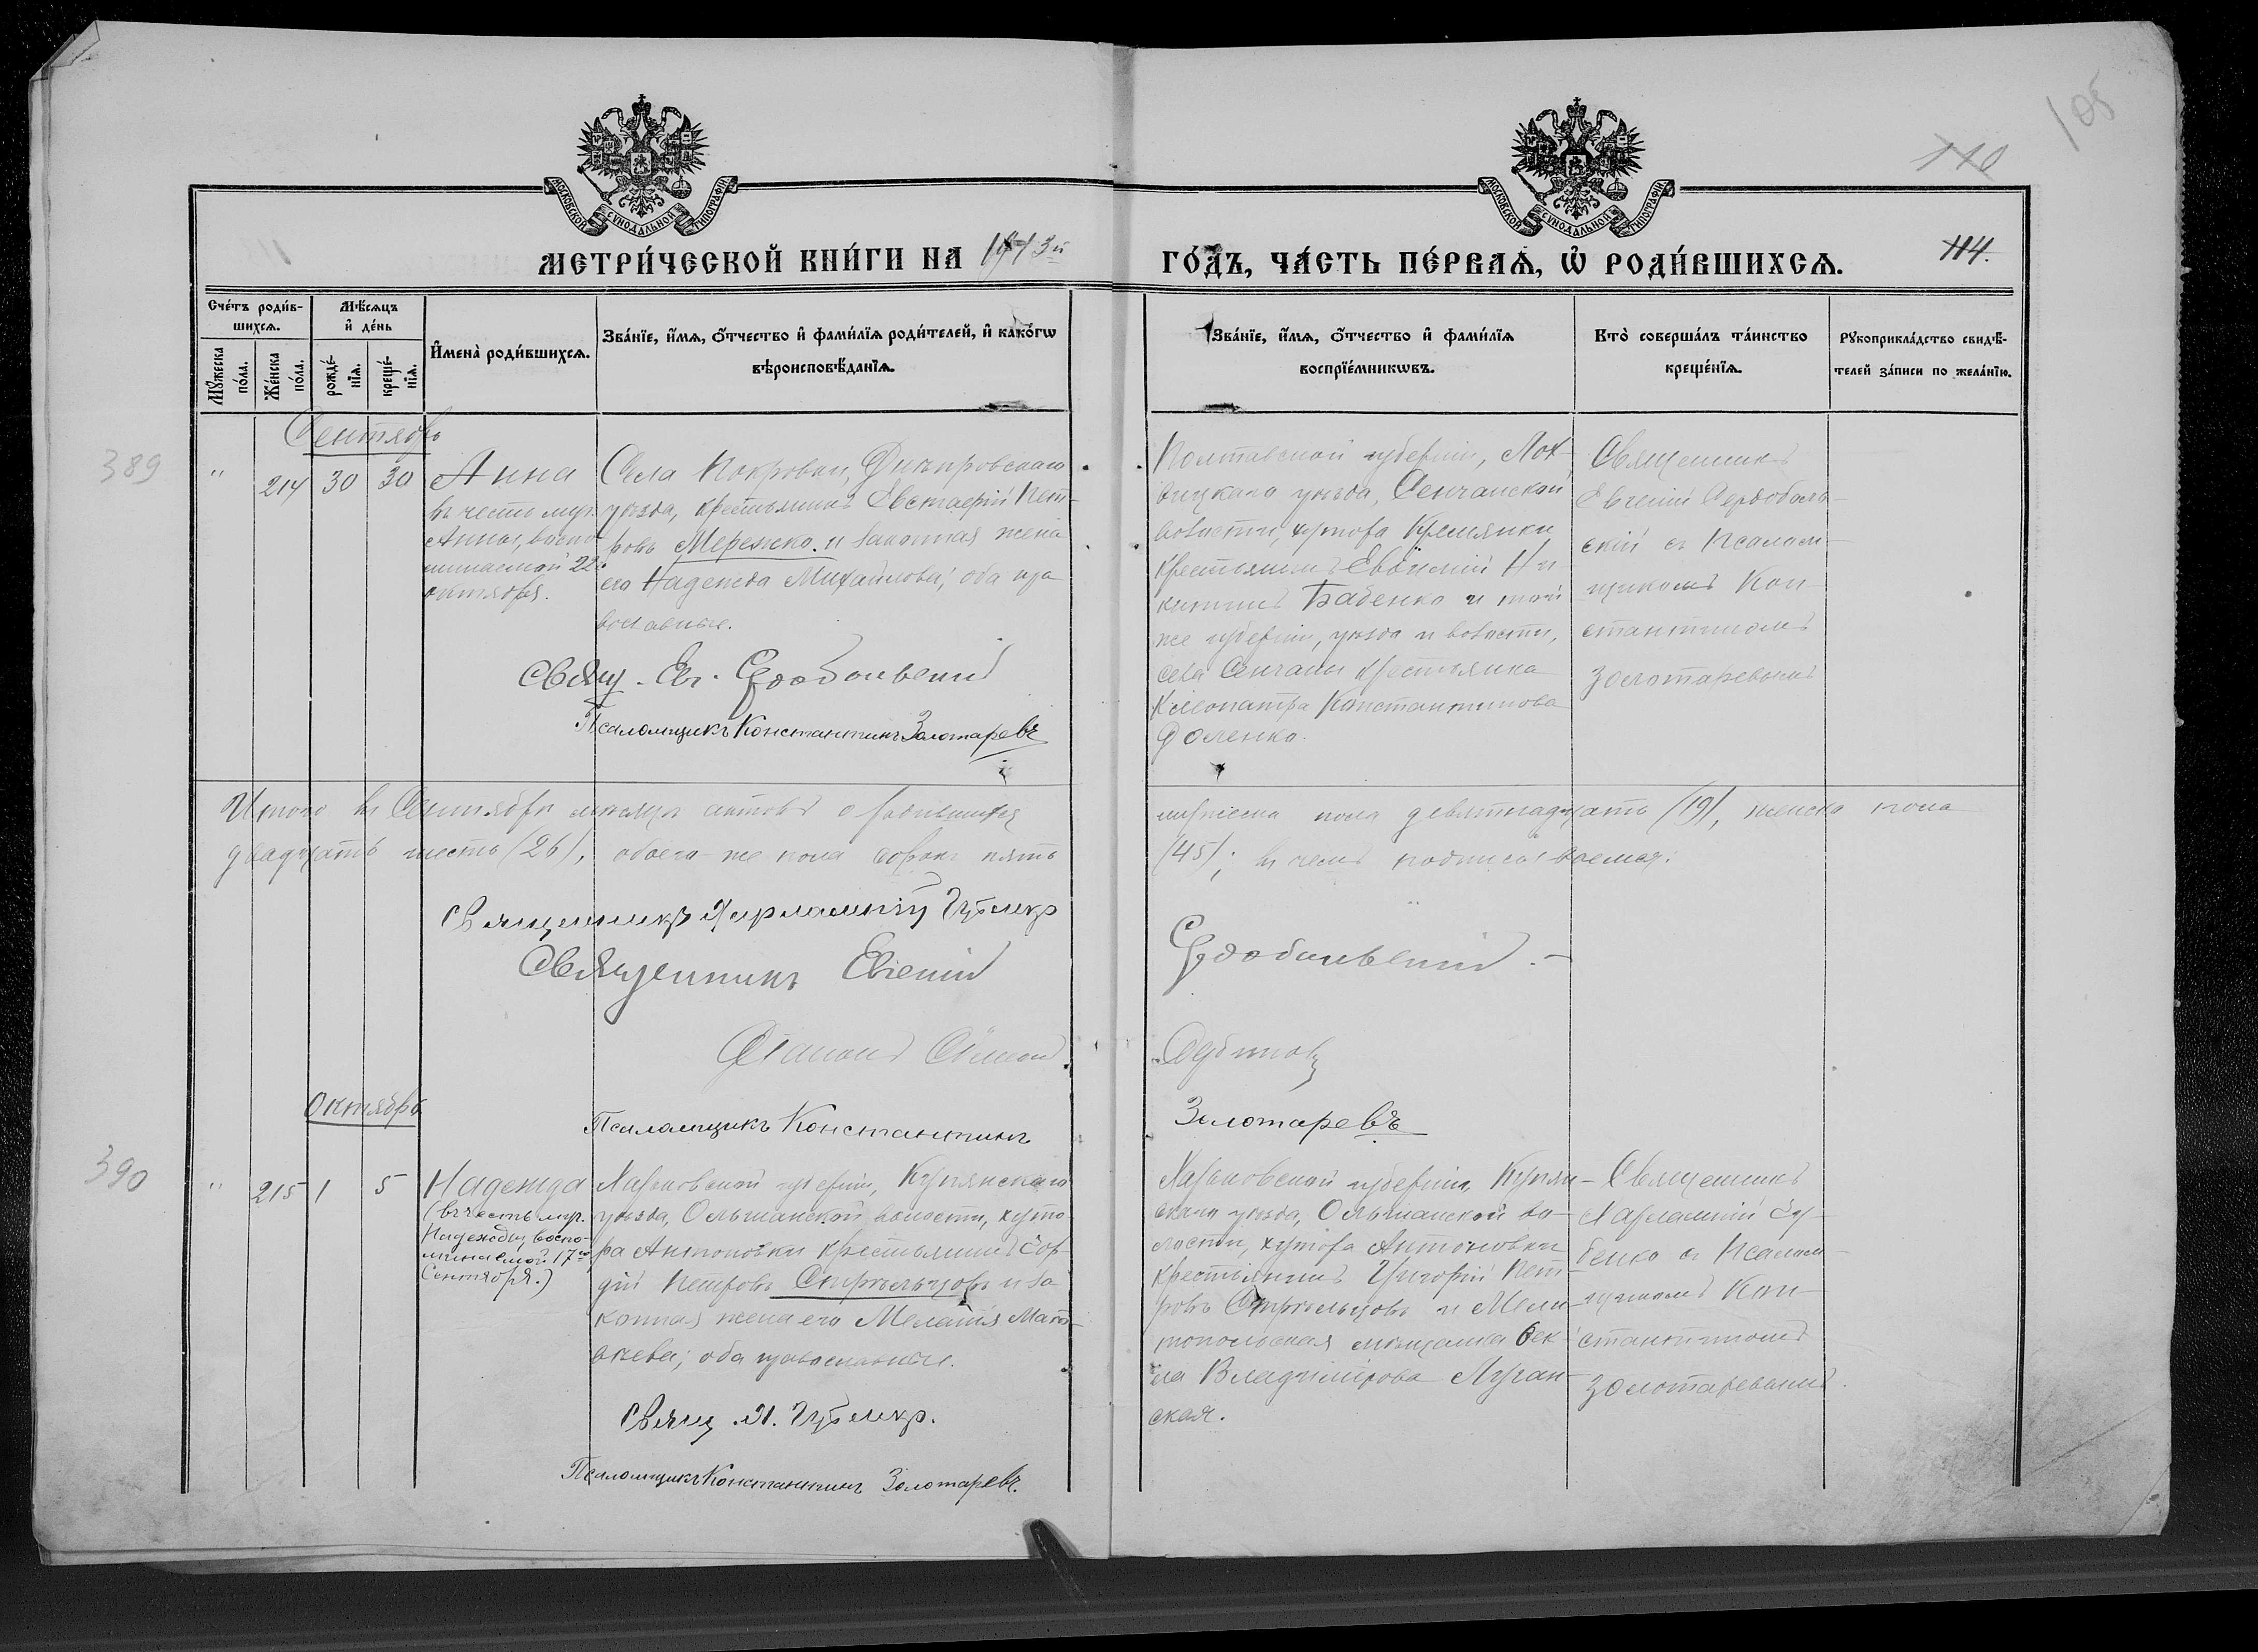 105
110
МОСКОВСКОЙ СѴНОДАЛЬНОЙ ТИПОГРАФІИ
МОСКОВСКОЙ СѴНОДАЛЬНОЙ ТИПОГРАФІИ
МЕТРИ́ЧЕСКОЙ КНИ́ГИ НА 1913й
ГО́ДЪ, ЧА́СТЬ ПЕ́РВАѦ, Ѡ РОДИ́ВШИХСѦ.
114.
Сче́тъ роди́в-
шихсѧ.
Мꙋ́жеска по́ла.
Же́нска по́ла.
Мѣ́сѧцъ
и҆ де́нь
рожде́-
нїѧ.
креще́-
нїѧ.
И҆мена̀ роди́вшихсѧ.
Зва́нїе, и҆́мѧ, ѻ҆́тчество и҆ фами́лїѧ роди́телей, и҆ како́гѡ
вѣроисповѣ́данїѧ.
Зва́нїе, и҆́мѧ, ѻ҆́тчество и҆ фами́лїѧ
воспрїе́мникѡвъ.
Кто̀ соверша́лъ та́инство
креще́нїѧ.
Рꙋкоприкла́дство свидѣ́-
телей за́писи по жела́нїю.
Сентябрь
389
" 214 30 30
Анна
въ честь муч.
Анны, воспо-
минаемой 22
октября.
Села Покровки, Днѣпровскаго
уѣзда, крестьянинъ Евстафій Пет-
ровъ Мережко и законная жена
его Надежда Михайлова; оба пра-
вославные.
Свящ. Ев. Сердобольскій
Псаломщикъ Константинъ Золотаревъ
Полтавской губерніи, Лох-
вицкаго уѣзда, Сенчанской
волости, хутора Кремянки
крестьянинъ Евѳимій Ни-
китинъ Бабенко и той
же губерніи, уѣзда и волости,
села Сенчани крестьянка
Клеопатра Константинова
Доленко.
Священникъ
Евгеній Сердоболь-
скій съ Псалом-
щикомъ Кон-
стантиномъ
Золотаревымъ
Итого въ Сентябрѣ мѣсяцѣ актовъ о родившихся
мужеска пола девятнадцать (19), женска пола
двадцать шесть (26), обоего же пола сорокъ пять
(45); въ чемъ подписываемся:
Священникъ Харлампій Губенко
Священникъ Евгеній
Сердобольскій.
Діаконъ Симеонъ
Псаломщикъ Константинъ
Золотаревъ
Октябрь
390
" 215 1 5
Надежда
(въ честь муч.
Надежды, воспо-
минаемой 17го
Сентября.)
Харьковской губерніи, Купянскаго
уѣзда, Ольшанской волости, хуто-
ра Антоновки крестьянинъ Гор-
дій Петровъ Стрѣльцовъ и за-
конная жена его Меланія Мат-
вѣева; оба православные.
Свящ. Х. Губенко.
Псаломщикъ Константинъ Золотаревъ.
Харьковской губерніи, Купян-
скаго уѣзда, Ольшанской во-
лости, хутора Антоновки
крестьянинъ Григорій Пет-
ровъ Стрѣльцовъ и Мели-
топольская мѣщанка Ѳек-
ла Владимірова Луган-
ская.
Священникъ
Харлампій Гу-
бенко съ Псалом-
щикомъ Кон-
стантиномъ
Золотаревымъ.